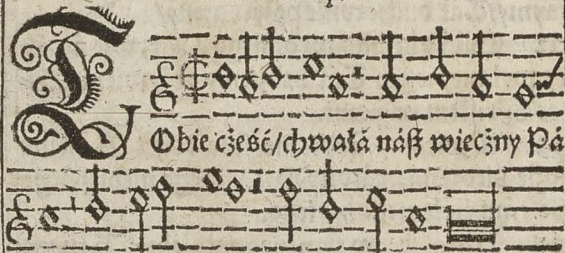 TObie cżeść/chwałá náſz wiecżny Pá